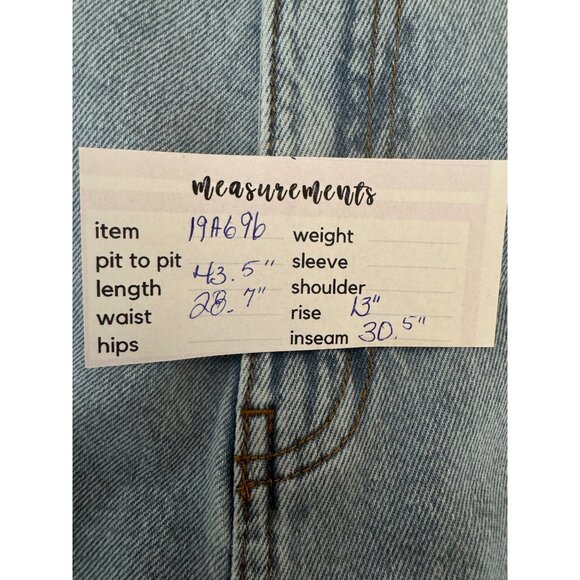 measurements
item 19A69b weight
pit to pit sleeve
length 43.5" shoulder
waist 28.7" rise 13"
hips inseam 30.5"